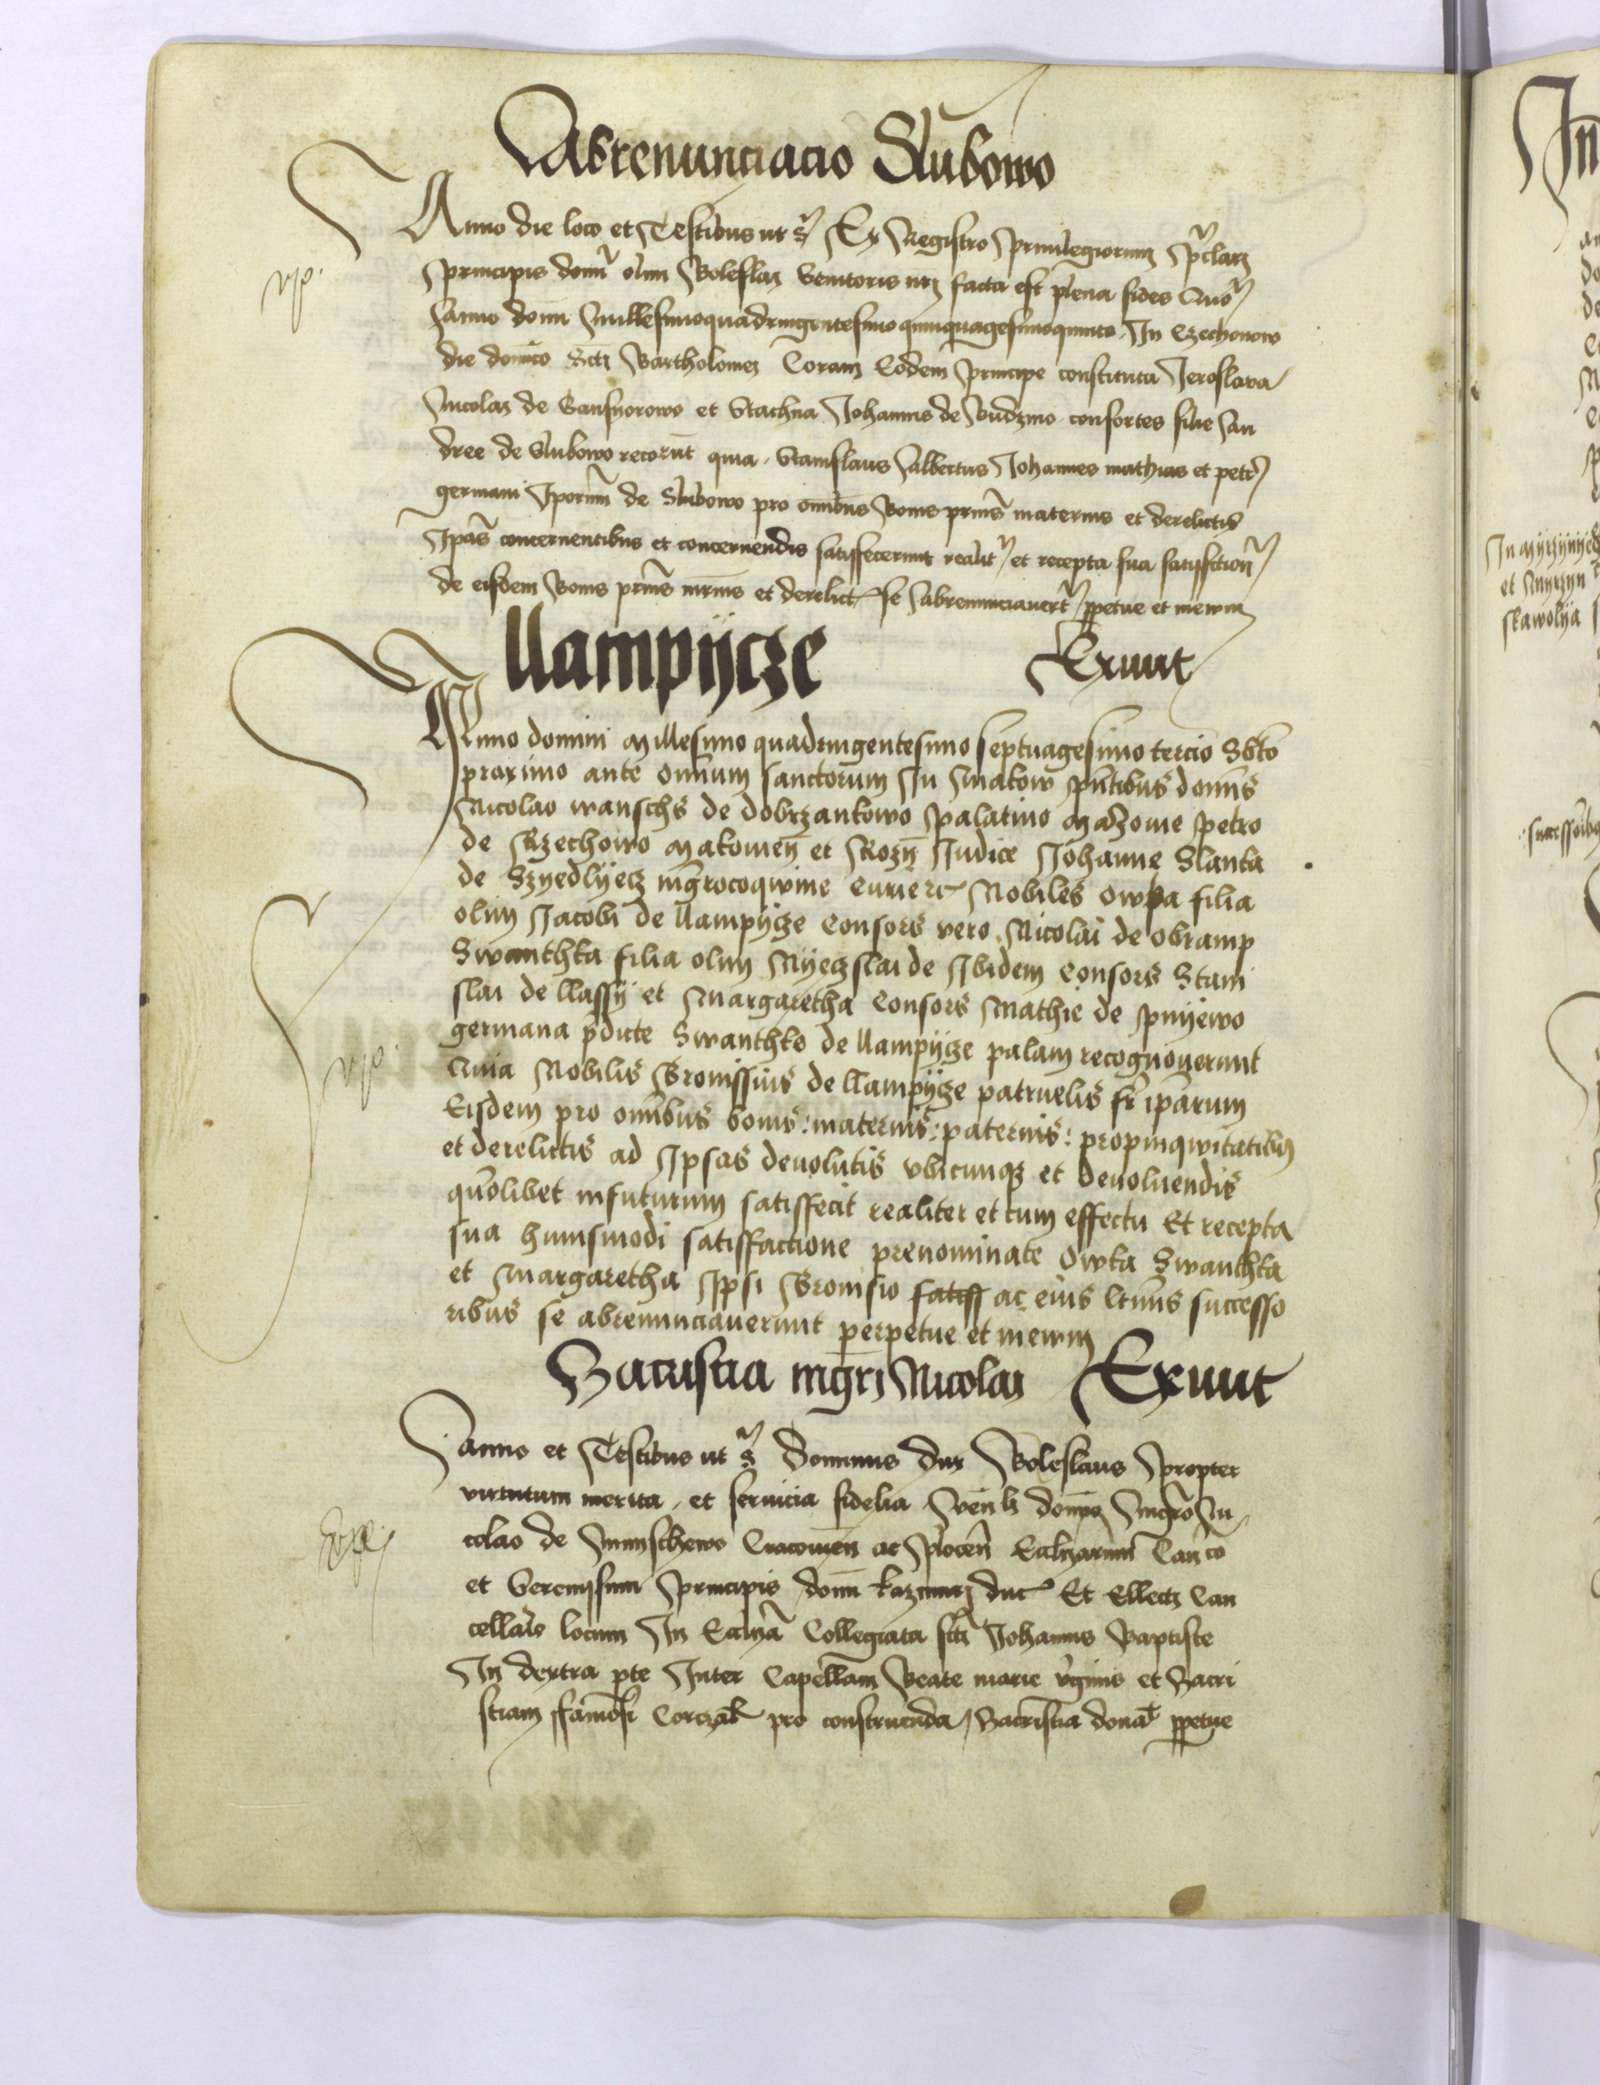 Abrenunciacio Slubowo
Anno die loco et Testibus ut s Ex Registro privilegiorum
principis domi olim Boleslai Genitoris nri facta est plena fides Quo
Anno domi Millesimoquadringentesimoquinquagesimoquinto In Czechonowo
die domico Scti Bartholomei Coram Eodem principe constituta Jeroslava
Nicolai de Gansyorowo et Stachna Johannis de Budzino consortes filie An
dree de Slubowo recorut quia Stanislaus Albertus Johannes mathias et petr
germani Iporum de Slubowo pro omibus Bonis prnis maternis et derelictis
Ipas concernentibus et concernendis satisfecerunt realit et recepta sua satisfction
de eisdem Bonis prnis mrnis et derelict se Abrenunciavert ppetue et inewm
llampijcze Exiuit
Anno domini Millesimo quadringentesimo septuagesimo tercio Sbto
proximo ante omnium sanctorum In Makow pntibus domis
Nicolao wanschs de dobrzankowo palatino Mazovie petro
de Krzechowo Makovien et Rozn Judice Johanne Slanka
de Szyedlyecz mgrocoqwine curie rc Nobiles Owka filia
olim Jacobi de llampijcze Consors vero Nicolai de obramp
Swanthka filia olim Myeczslai de Ibidem Consors Stani
slai de llassij et Margaretha Consors Mathie de pnyewo
germana pdicte Swanthke de llampijcze palam recognoverunt
Quia Nobilis Bronissius de llampijcze patruelis fr iparum
Eisdem pro omibus bonis: maternis: paternis: propinqwitatibus
et derelictis ad Ipsas devolutis vbicunqz et devoluendis
quolibet infuturum satisfecit realiter et cum effectu Et recepta
sua huiusmodi satisfactione prenominate Owka Swanthka
et Margaretha Ipsi Bronisio satisff ac eius ltimis successo
ribus se abrenunciaverunt perpetue et inewm
Sacristia mgri Nicolai Exiuit
Anno et Testibus ut s Dominus dux Boleslaus propter
virtutum merita et servicia fidelia Venli domi Mgro Ni
colao de Mnischewo Cracovien ac plocen Eccliarum Can co
et Serenissimi principis domi kazimiri duc Et Ellecti Can
cellario locum In Ecclia Collegiata scti Johannis Baptiste
In dextra pte Inter Capellam Beate marie vginis et Sacri
stiam ffamosi Corczak pro construenda Sacristia donat ppetue